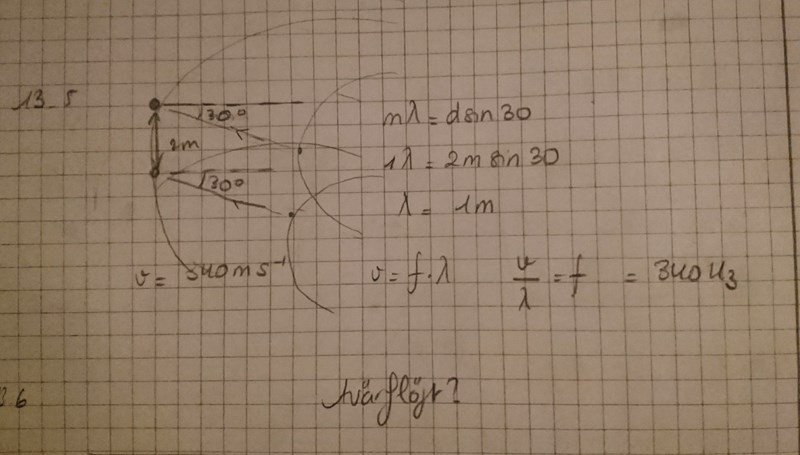 13_5
30°
mλ = dsin30
2m
1λ = 2m sin 30
30°
λ = 1m
v = 340ms⁻¹
v = f·λ
v/λ = f = 340Hz
6
tvärflöjt?